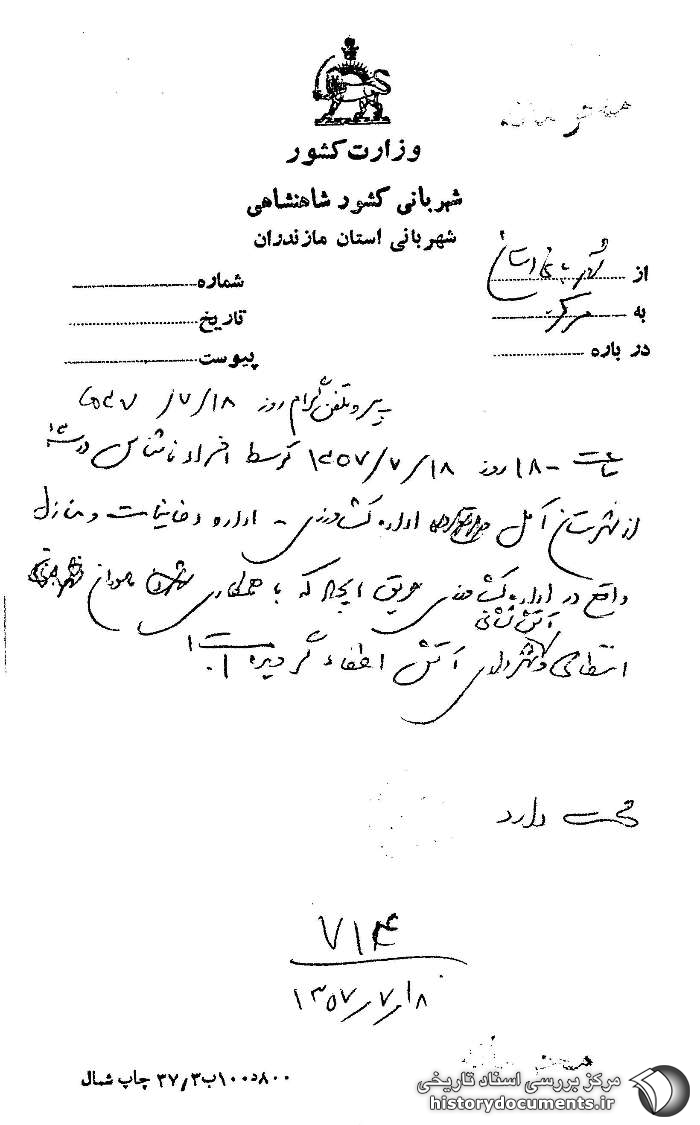 وزارت کشور
شهربانی کشور شاهنشاهی
شهربانی استان مازندران
از
به مرکز
در باره
شماره
تاریخ
پیوست
پیرو تلفنگرام روز ۷/۱۸/
ساعت ۱۸۰۰ روز ۱۳۵۷/۷/۱۸ توسط افراد ناشناس در
از شهرستان آمل اداره کشاورزی - اداره دخانیات و منازل
واقع در اداره کشاورزی حریق ایجاد که با همکاری مامورین
آتش نشانی
انتظامی و آتش اطفاء گردیده است.
صحت دارد
۷۱۴
۱۳۵۷/۷/۱۸
۸۰۰د۱۰۰ب۳۷٫۳ چاپ شمال
مرکز بررسی اسناد تاریخی
historydocuments.ir